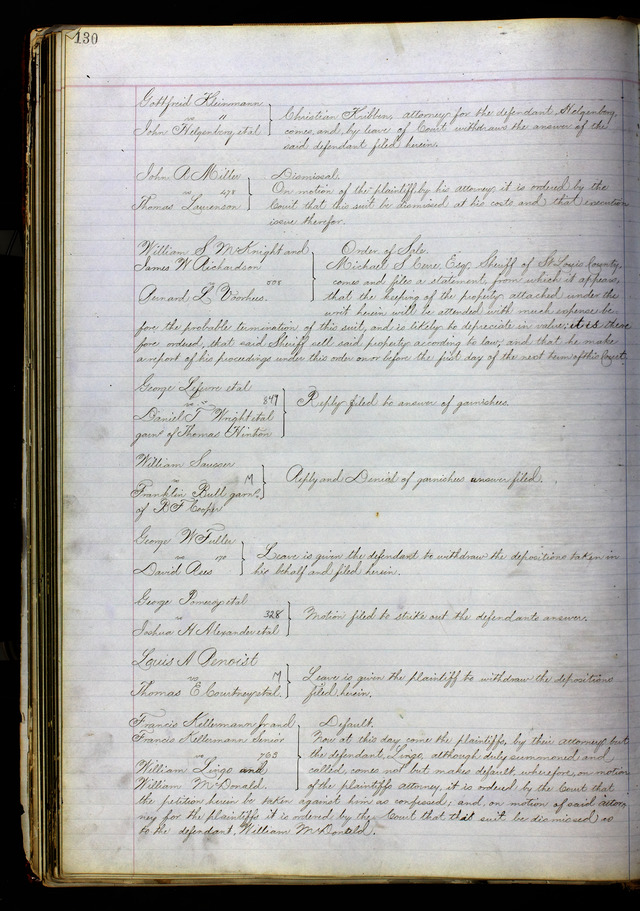 130
Gottfried Kleinmann
vs "
John Helgenberg, et al
Christian Kribben, attorney for the defendant Helgenberg,
comes, and by leave of Court withdraws the answer of the
said defendant filed herein.
John A Miller
vs 478
Thomas
Dismissal.
On motion of the plaintiff by his attorney it is ordered by the
Court that this suit be dismissed at his costs and that execution
issue therefor.
William S McKnight and
James W Richardson
vs
Bernard L Voorhis.
Order of Sale.
Michael S Cerre, Esq, Sheriff of St Louis County,
comes and files a statement, from which it appears
that the keeping of the property attached under the
writ herein will be attended with much expense be-
fore the probable termination of this suit, and is likely to depreciate in value; it is there
fore ordered, that said Sheriff sell said property according to law; and that he make
a report of his proceedings under this order on or before the first day of the next term of this Court
George Lefevre et al
vs 847
Daniel T Wright et al
garn' of Thomas Hinton
Reply filed to answer of garnishees.
William Sausser
vs M
Franklin Bull garn'
of B F
Reply and Denial of garnishees answer filed.
George W Fuller
vs 170
David Rees
Leave is given the defendant to withdraw the depositions taken in
his behalf and filed herein.
George et al
vs 328
Joshua H Alexander et al
Motion filed to strike out the defendants answer.
Louis A Benoist
vs M
Thomas E Courtney et al.
Leave is given the plaintiff to withdraw the depositions
filed herein.
Francis Kellermann Jr and
Francis Kellermann Senior
vs 703
William Lingo and
William McDonald.
Default.
Now at this day come the plaintiffs, by their attorneys but
the defendant, Lingo, although duly summoned and
called, comes not but makes default, wherefore, on motion
of the plaintiffs attorney, it is ordered by the Court that
the petition herein be taken against him as confessed; and, on motion of said attor-
ney for the plaintiffs it is ordered by the Court that this suit be dismissed as
to the defendant, William McDonald.